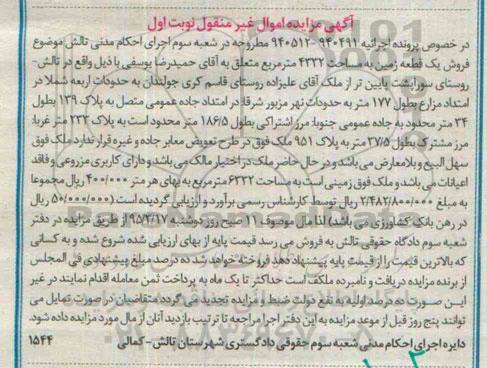 آگهی مزایده اموال غیر منقول نوبت اول
در خصوص پرونده اجرائیه ۹۴۰۴۹۱ -۹۴۰۵۱۲ مطروحه در شعبه سوم اجرای احکام مدنی تالش موضوع
فروش یک قطعه زمین به مساحت ۴۳۳۲ مترمربع متعلق به آقای حمیدرضا یوسفی با ذیل واقع در تالش-
روستای سوراپشت پایین تر از ملک آقای علیزاده روستای قاسم کری جولندان به حدودات اربعه شملا در
امتداد مزارع بطول ۱۷۷ متر به حدودات نهر مزبور شرقا: در امتداد جاده عمومی متصل به پلاک ۱۳۹ بطول
۳۴ متر محدود به جاده عمومی جنوبا: مرز اشتراکی بطول ۱۸۶/۵ متر محدود است به پلاک ۲۳۲ متر غربا:
مرز مشترک بطول ۳۷/۵ متر به پلاک ۹۵۱ ملک فوق در طرح تعویض معابر جاده و غیره قرار ندارد ملک فوق
سهل البیع و بلامعارض می باشد و در حال حاضر ملک در اختیار مالک می باشد و دارای کاربری مزروعی و فاقد
اعیانات می باشد و ملک فوق زمینی است به مساحت ۶۳۳۲ مترمربع به بهای هر متر ۴۰۰/۰۰۰ ریال مجموعا
به مبلغ ۲/۴۸۲/۸۰۰/۰۰۰ ریال توسط کارشناس رسمی برآورد و ارزیابی گردیده است (۵۰/۰۰۰/۰۰۰ ریال
در رهن بانک کشاورزی می باشد) لذا مال موصوف ۱۱ صبح روز دوشنبه ۹۵/۲/۱۷ از طریق مزایده در دفتر
شعبه سوم دادگاه حقوقی تالش به فروش می رسد قیمت پایه از بهای ارزیابی شده شروع شده و به کسانی
که بالاترین قیمت را از قیمت پایه پیشنهاد دهد فروخته خواهد شد ده درصد مبلغ پیشنهادی فی المجلس
از برنده مزایده دریافت و نامبرده مکلف است حداکثر تا یک ماه به پرداخت ثمن معامله اقدام نمایند در غیر
این صورت ده درصد اولیه به نفع دولت ضبط و مزایده تجدید می گردد متقاضیان در صورت تمایل می
توانند پنج روز قبل از موعد مزایده به این دفتر اجرا مراجعه تا ترتیب بازدید آنان از مال مورد مزایده داده شود.
دایره اجرای احکام مدنی شعبه سوم حقوقی دادگستری شهرستان تالش - کمالی ۱۵۴۴